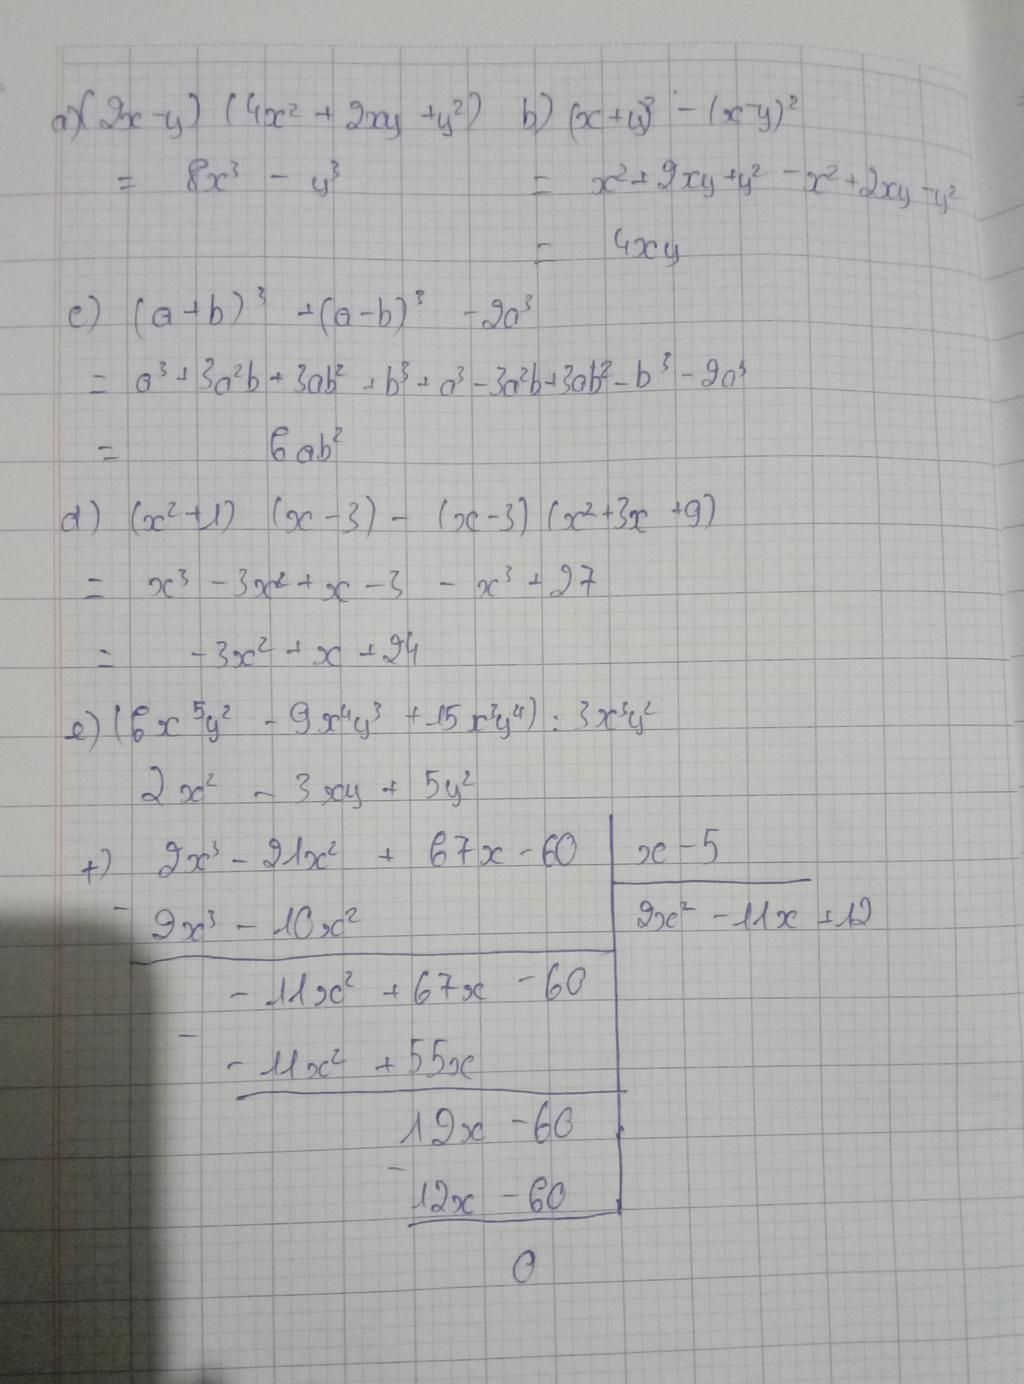 a) (2x-y) (4x² + 2xy + y²)
= 8x³ - y³
b) (x+y)² - (x-y)²
= x² + 2xy + y² - x² + 2xy - y²
= 4xy
c) (a+b)³ + (a-b)³ - 2a³
= a³ + 3a²b + 3ab² + b³ + a³ - 3a²b + 3ab² - b³ - 2a³
= 6ab²
d) (x²+1) (x-3) - (x-3) (x²+3x+9)
= x³ - 3x² + x - 3 - x³ + 27
= -3x² + x + 24
e) (6x⁵y² - 9x⁴y³ + 15x³y⁴) : 3x³y²
2x² - 3xy + 5y²
f) 2x³ - 21x² + 67x - 60 | x - 5
- 2x³ - 10x² | 2x² - 11x + 12
- 11x² + 67x - 60
-
- 11x² + 55x
12x - 60
-
12x - 60
0